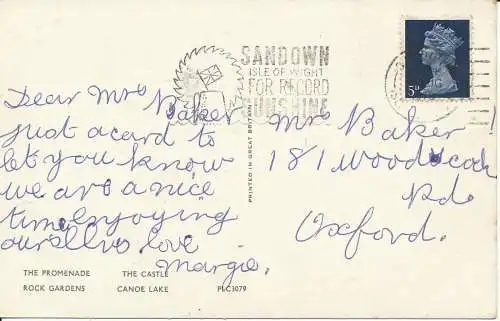 SANDOWN
ISLE OF WIGHT
FOR RECORD
SUNSHINE
5D
Dear Mrs Baker
just a card to
let you know
we are a nice
time enjoying
ourselves love
Margie.
PRINTED IN GREAT BRITAIN
Mrs Baker
181 Woodstock
Rd
Oxford.
THE PROMENADE THE CASTLE
ROCK GARDENS CANOE LAKE PLC3079